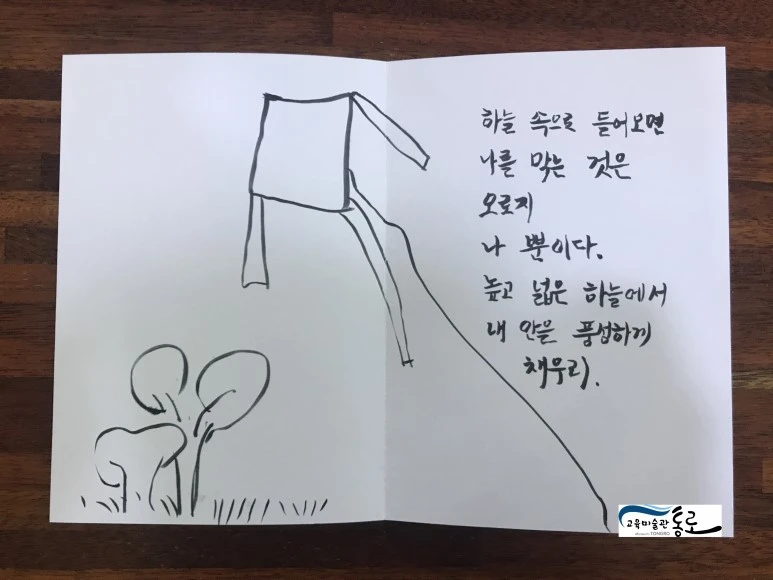 하늘 속으로 들어보면
나를 막는 것은
오로지
나 뿐이다.
높고 넓은 하늘에서
내 안을 풍성하게
채우리.
교육미술관 통로
museum TONGRO